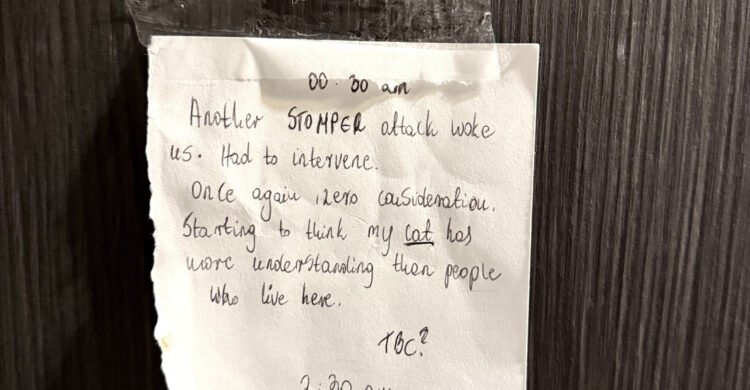 00.30 am
Another STOMPER attack woke
us. Had to intervene.
Once again, zero consideration.
Starting to think my cat has
more understanding than people
who live here.
TBC?